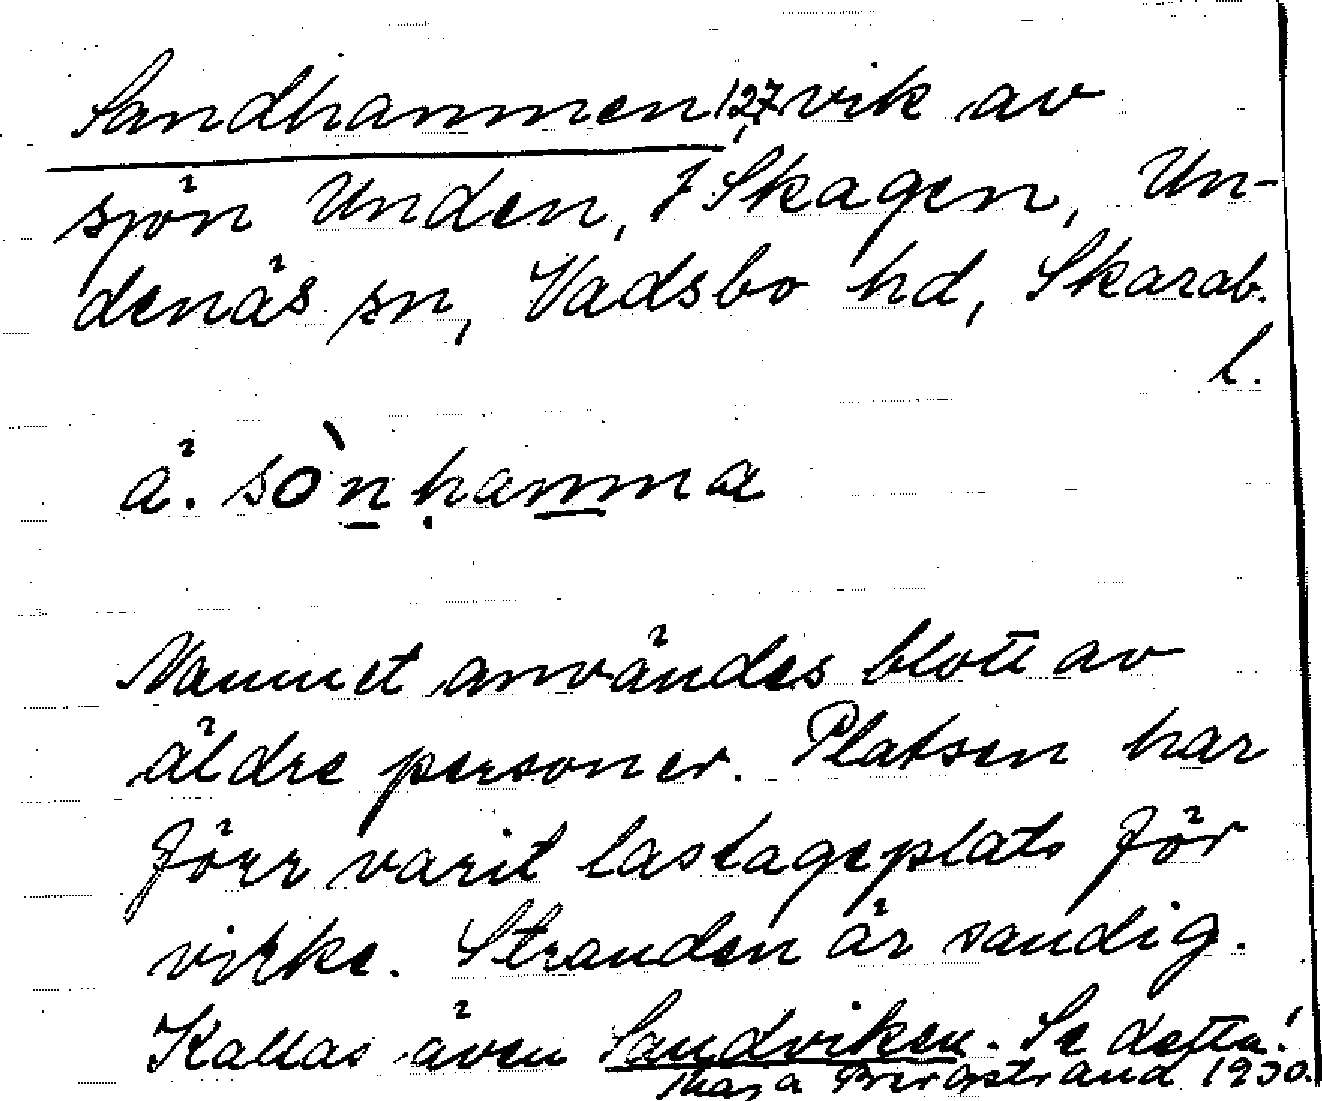 Sandhammen, 127 vik av
sjön Unden, f Skagen, Un-
denäs sn, Vadsbo hd, Skarab.
l.
ä. sònhamma
Namnet användes blott av
äldre personer. Platsen har
förr varit lastageplats för
virke. Stranden är sandig.
Kallas även Sandviken. Se detta!
Bergstrand 1930.